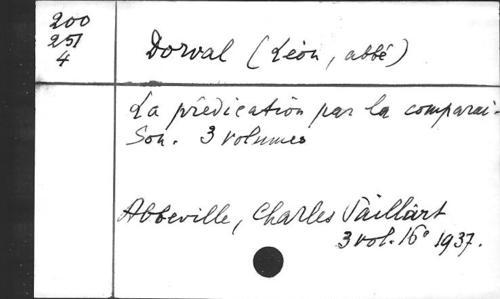 200
251
4
Dorval (Léon, abbé)
La prédication par la comparai-
son. 3 volumes
Abbeville, Charles Paillart
3 vol. 16° 1937.